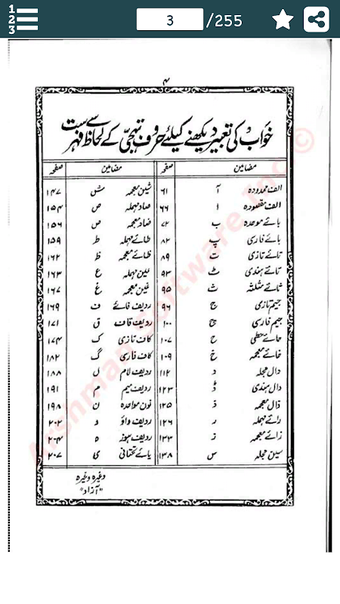 1 2 3
3 /255
۴
خواب کی تعبیر دیکھنے کیلئے حروف تہجی کے لحاظ سے فہرست
مضامین صفحہ مضامین صفحہ
الف ممدودہ آ ۶۱ شین معجمہ ش ۱۴۷
الف مقصودہ ا ۶۶ صاد مہملہ ص ۱۵۴
بائے موحدہ ب ضاد معجمہ ض ۱۵۶
بائے فارسی پ ۸۲ طائے مہملہ ط ۱۵۹
تائے تازی ت ۸۹ ظائے معجمہ ظ ۱۶۲
تائے ہندی ٹ ۹۳ عین مہملہ ع ۱۶۳
ثائے مثلثہ ث ۹۵ غین معجمہ غ ۱۶۷
جیم تازی ج ۹۶ ردیف فائے ف ۱۶۹
جیم فارسی چ ۱۰۰ ردیف قاف ق ۱۷۱
حائے حطی ح ۱۰۷ کاف تازی ک ۱۷۴
خائے معجمہ خ ۱۰۹ کاف فارسی گ ۱۸۲
دال مہملہ د ۱۱۲ ردیف لام ل ۱۸۸
دال ہندی ڈ ۱۲۳ ردیف میم م ۱۹۱
ذال معجمہ ذ ۱۲۵ نون مواحدہ ن ۱۹۸
رائے مہملہ ر ۱۲۶ ردیف واؤ و
زائے معجمہ ز ۱۳۳ ردیف ہوز ہ ۲۰۴
سین مہملہ س ۱۳۸ یائے تحتانی ی ۲۰۷
وغیرہ وغیرہ
"آزاد"